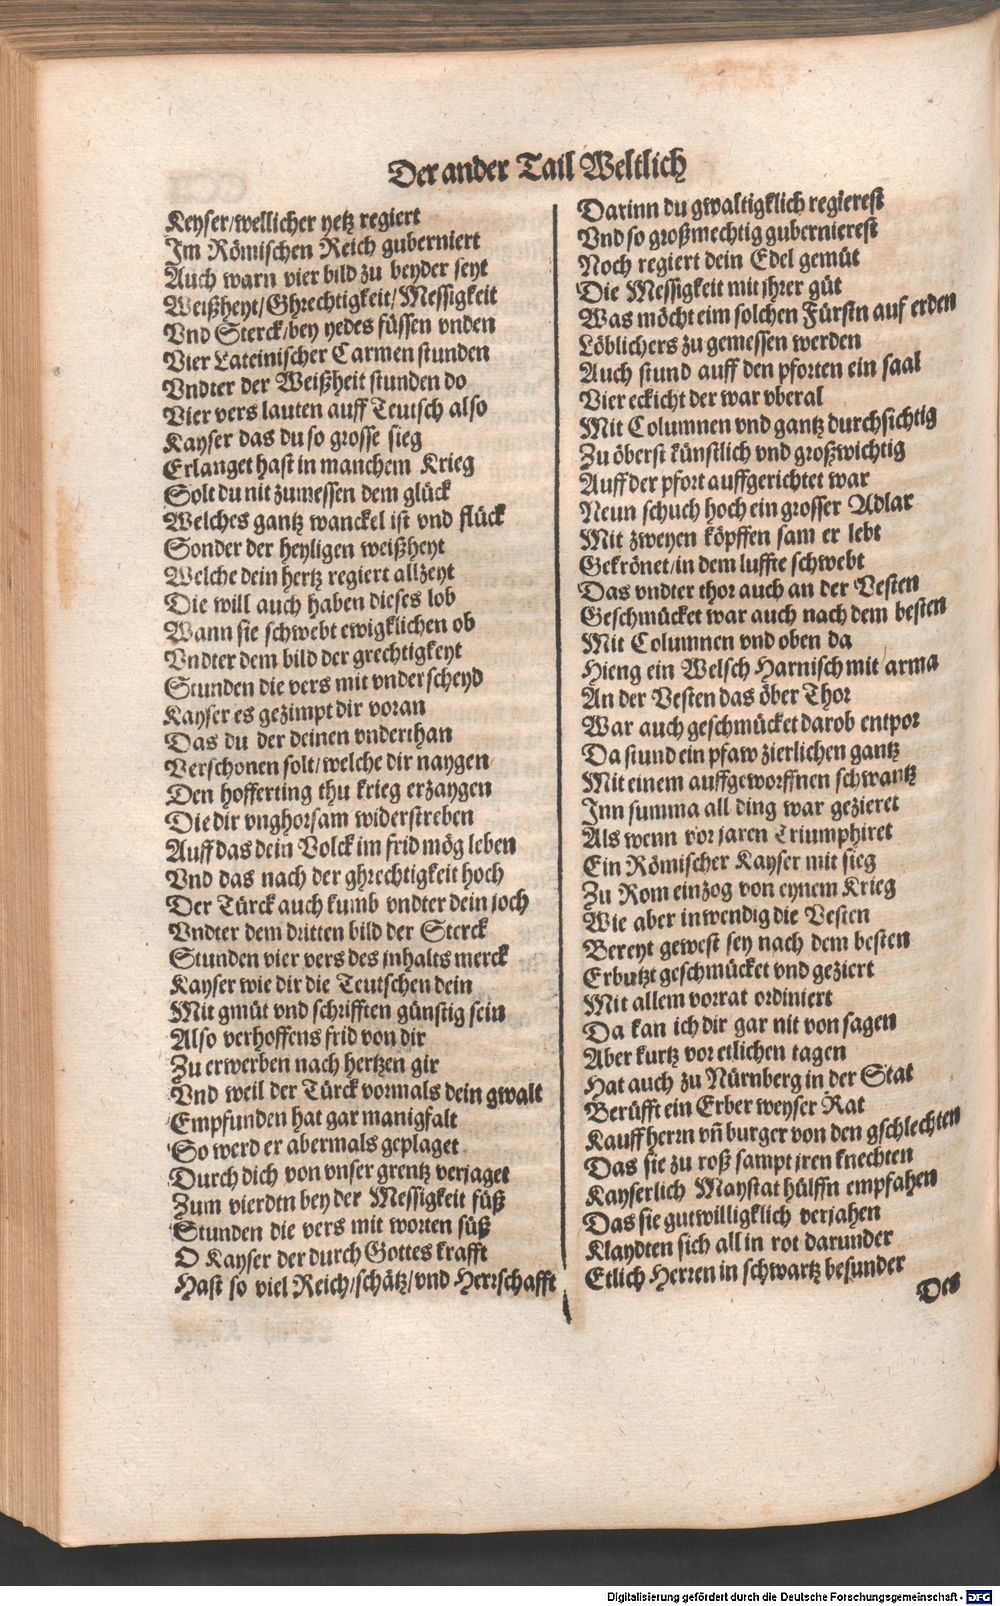 Der ander Tail Weltlich
Keyser/wellicher yetz regiert
Im Römischen Reich guberniert
Auch warn vier bild zu beyder seyt
Weißheyt/Ghrechtigkeit/Messigkeit
Vnd Sterck/bey yedes füssen vnden
Vier Lateinischer Carmen stunden
Vndter der Weißheit stunden do
Vier vers lauten auff Teutsch also
Kayser das du so grosse sieg
Erlanget hast in manchem Krieg
Solt du nit zumessen dem glück
Welches gantz wanckel ist vnd flück
Sonder der heyligen weißheyt
Welche dein hertz regiert allzeyt
Die will auch haben dieses lob
Wann sie schwebt ewigklichen ob
Vndter dem bild der grechtigkeyt
Stunden die vers mit vnderscheyd
Kayser es gezimpt dir voran
Das du der deinen vnderthan
Verschonen solt/welche dir naygen
Den hofferting thu krieg erzaygen
Die dir vnghorsam widerstreben
Auff das dein Volck im frid mög leben
Vnd das nach der ghrechtigkeit hoch
Der Türck auch kumb vndter dein joch
Vndter dem dritten bild der Sterck
Stunden vier vers des inhalts merck
Kayser wie dir die Teutschen dein
Mit gmüt vnd schrifften günstig sein
Also verhoffens frid von dir
Zu erwerben nach hertzen gir
Vnd weil der Türck vormals dein gwalt
Empfunden hat gar manigfalt
So werd er abermals geplaget
Durch dich von vnser grentz verjaget
Zum vierdtn bey der Messigkeit füß
Stunden die vers mit worten süß
O Kayser der durch Gottes krafft
Hast so viel Reich/schätz/vnd Herrschafft
Darinn du gwaltigklich regierest
Vnd so großmechtig gubernierest
Noch regiert dein Edel gemüt
Die Messigkeit mit jhrer güt
Was möcht eim solchen Fürstn auf erden
Löblichers zu gemessen werden
Auch stund auff den pforten ein saal
Vier eckicht der war vberal
Mit Columnen vnd gantz durchsichtig
Zu öberst künstlich vnd großwichtig
Auff der pfort auffgerichtet war
Neun schuch hoch ein grosser Adlar
Mit zweyen köpffen sam er lebt
Gekrönet/in dem luffte schwebt
Das vndter thor auch an der Vesten
Geschmücket war auch nach dem besten
Mit Columnen vnd oben da
Hieng ein Welsch Harnisch mit arma
An der Vesten das öber Thor
War auch geschmücket darob entpor
Da stund ein pfaw zierlichen gantz
Mit einem auffgeworffnen schwantz
Inn summa all ding war gezieret
Als wenn vor jaren Triumphiret
Ein Römischer Kayser mit sieg
Zu Rom einzog von eynem Krieg
Wie aber inwendig die Vesten
Bereyt gewest sey nach dem besten
Erbutzt geschmücket vnd geziert
Mit allem vorrat ordiniert
Da kan ich dir gar nit von sagen
Aber kurtz vor etlichen tagen
Hat auch zu Nürnberg in der Stat
Berüfft ein Erber weyser Rat
Kauffherrn vñ burger von den gschlechten
Das sie zu roß sampt jren knechten
Kayserlich Maystat hülffn empfahen
Das sie gutwilligklich verjahen
Klaydten sich all in rot darunder
Etlich Herren in schwartz besunder
Des
Digitalisierung gefördert durch die Deutsche Forschungsgemeinschaft - DFG